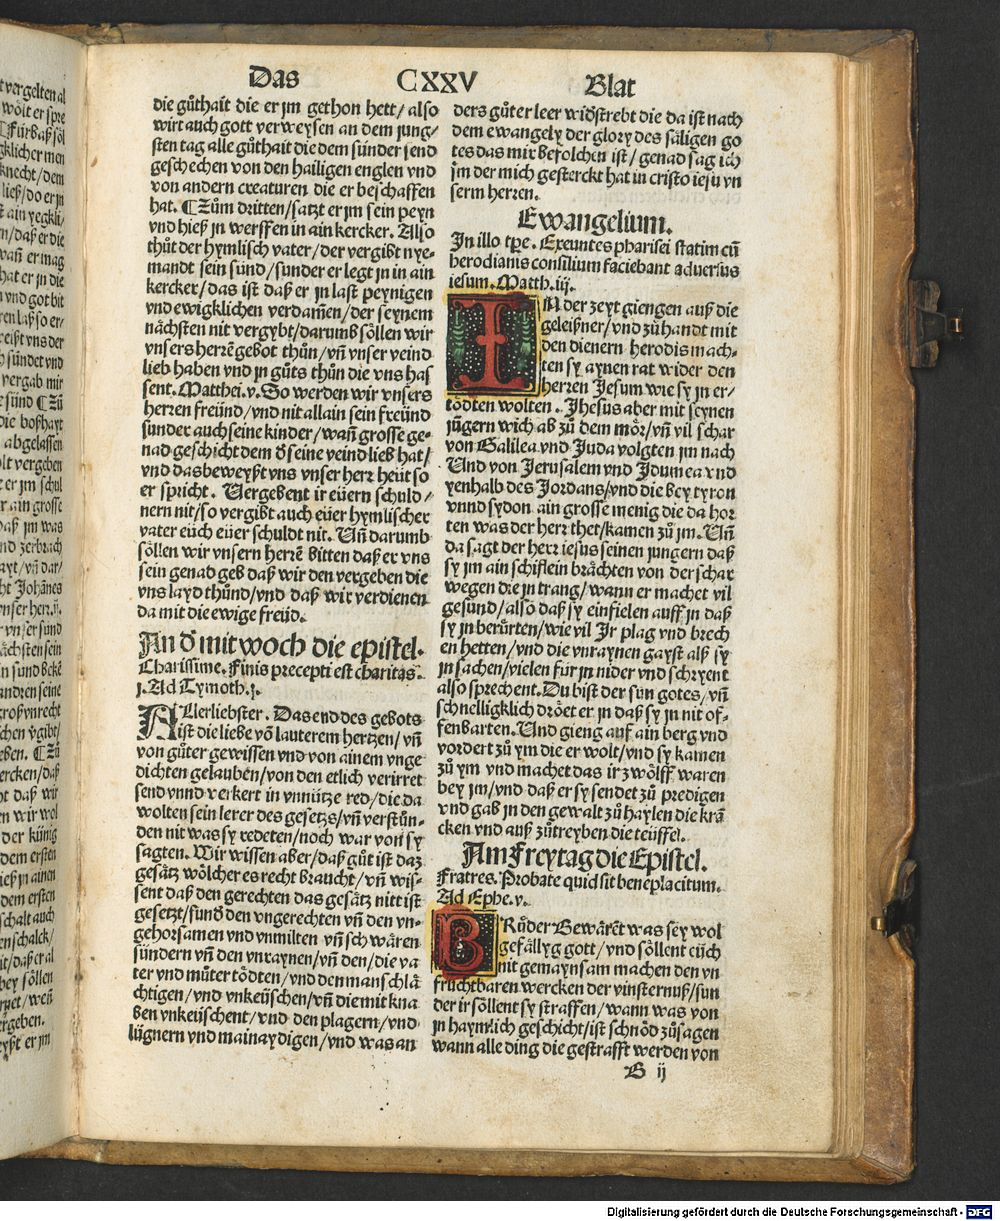 Das CXXV Blat
die gůthait die er jm gethon hett/ also
wirt auch gott verweysen an dem jung⸗
sten tag alle gůthait die dem sünder send
geschechen von den hailigen englen vnd
von andern creaturen die er beschaffen
hat. ¶ Zům dritten/satzt er jm sein peyn
vnd hieß jn werffen in ain kercker. Also
thůt der hymlisch vater/der vergibt nye⸗
mandt sein sünd/sunder er legt jn in ain
kercker/das ist daß er jn last peynigen
vnd ewigklichen verdam̄en/der seynem
nächsten nit vergybt/darumb söllen wir
vnsers herrē gebot thůn/vn̄ vnser veind
lieb haben vnd jn gůts thůn die vns has
sent. Matthei.v. So werden wir vnsers
herren freünd/vnd nit allain sein freünd
sunder auch seine kinder/wan̄ grosse ge⸗
nad geschicht dem d̄ seine veind lieb hat/
vnd das beweyßt vns vnser herr heüt so
er spricht. Vergebent ir eüern schuld⸗
nern nit/so vergibt auch eüer hymlischer
vater eüch eüer schuldt nit. Vn̄ darumb
söllen wir vnsern herrē bitten daß er vns
sein genad geb daß wir den vergeben die
vns layd thůnd/vnd daß wir verdienen
da mit die ewige freüd.
An d̄ mitwoch die epistel.
Charissime. Finis precepti est charitas.
j. Ad Tymoth.j.
ALlerliebster. Das end des gebots
ist die liebe vō lauterem hertzen/vn̄
von gůter gewissen vnd von ainem vnge
dichten gelauben/von den etlich verirret
send vnnd verkert in vnnütze red/die da
wolten sein lerer des gesetzs/vn̄ verstůn⸗
den nit was sy redeten/noch war von sy
sagten. Wir wissen aber/daß gůt ist daz
gesätz wölcher es recht braucht/vn̄ wis⸗
sent daß den gerechten das gesätz nitt ist
gesetzt/sund̄ den vngerechten vn̄ den vn⸗
gehorsamen vnd vnmilten vn̄ schwären
sündern vn̄ den vnraynen/vn̄ den/die va
ter vnd můter tödten/vnd den manschlä
chtigen/vnd vnkeüschen/vn̄ die mit kna
ben vnkeüschent/vnd den plagern/vnd
lügnern vnd mainaydigen/vnd was an
ders gůter leer widstrebt die da ist nach
dem ewangely der glory des säligen go
tes das mir befolchen ist/genad sag ich
jm der mich gesterckt hat in cristo iesu vn
serm herren.
Ewangelium.
In illo tpe. Exeuntes pharisei statim cū
herodianis consilium faciebant aduersus
iesum. Matth.iij.
IN der zeyt giengen auß die
geleißner/vnd zů handt mit
den dienern herodis mach⸗
ten sy aynen rat wider den
herren Jesum wie sy jn er⸗
tödten wolten. Jhesus aber mit seynen
jūgern wich ab zů dem mör/vn̄ vil schar
von Galilea vnd Juda volgten jm nach
Vnd von Jerusalem vnd Jdumea vnd
yenhalb des Jordans/vnd die bey tyron
vnnd sydon ain grosse menig die da hor
ten was der herr thet/kamen zů jm. Vn̄
da sagt der herr iesus seinen jungern daß
sy jm ain schiflein brächten von der schar
wegen die jn trang/wann er machet vil
gesund/also daß sy einfielen auff jn daß
sy jn berürten/wie vil Jr plag vnd brech
en hetten/vnd die vnraynen gayst alß sy
jn sachen/vielen für jn nider vnd schryent
also sprechent. Du bist der sun gotes/vn̄
schnelligklich dröet er jn daß sy jn nit of⸗
fenbarten. Vnd gieng auf ain berg vnd
vordert zů ym die er wolt/vnd sy kamen
zů ym vnd machet das ir zwölff waren
bey jm/vnd daß er sy sendet zů predigen
vnd gab jn den gewalt zů haylen die krā
cken vnd auß zůtreyben die teüffel.
Am freytag die Epistel.
Fratres. Probate quid sit beneplacitum.
Ad Ephe.v.
BRůder Bewärēt was sey wol
gefällyg gott/vnd söllent eüch
nit gemaynsam machen den vn
fruchtbaren wercken der vinsternuß/sun
der ir söllent sy straffen/wann was von
jn haymlich geschicht/ist schnöd zůsagen
wann alle ding die gestrafft werden von
B ij
Digitalisierung gefördert durch die Deutsche Forschungsgemeinschaft - DFG